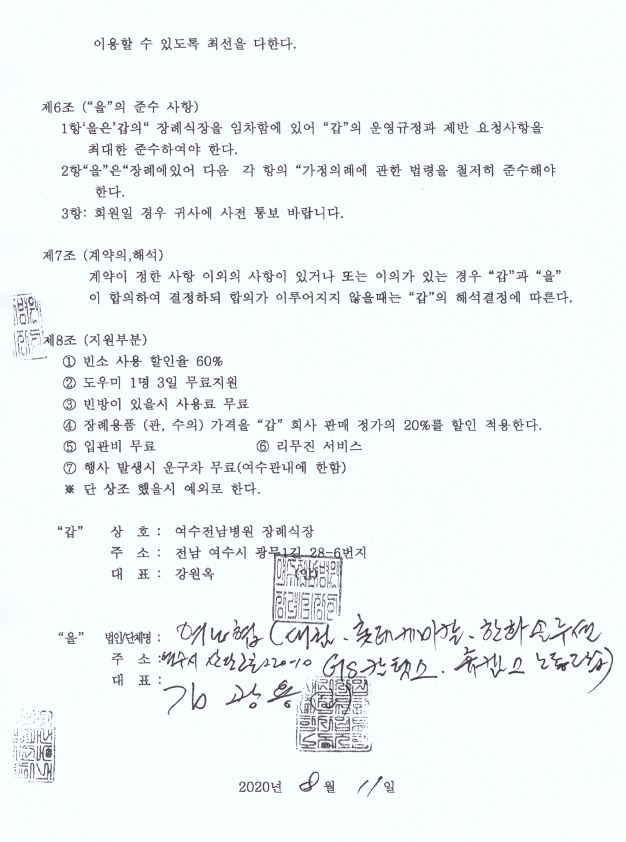 이용할 수 있도록 최선을 다한다.
제6조 (“을”의 준수 사항)
1항‘을은’갑의“ 장례식장을 임차함에 있어 “갑”의 운영규정과 제반 요청사항을
최대한 준수하여야 한다.
2항“을”은“장례에있어 다음 각 항의 “가정의례에 관한 법령을 철저히 준수해야
한다.
3항: 회원일 경우 귀사에 사전 통보 바랍니다.
제7조 (계약의,해석)
계약이 정한 사항 이외의 사항이 있거나 또는 이의가 있는 경우 “갑”과 “을”
이 합의하여 결정하되 합의가 이루어지지 않을때는 “갑”의 해석결정에 따른다.
제8조 (지원부분)
① 빈소 사용 할인율 60%
② 도우미 1명 3일 무료지원
③ 빈방이 있을시 사용료 무료
④ 장례용품 (관, 수의) 가격을 “갑” 회사 판매 정가의 20%를 할인 적용한다.
⑤ 입관비 무료 ⑥ 리무진 서비스
⑦ 행사 발생시 운구차 무료(여수관내에 한함)
※ 단 상조 했을시 예외로 한다.
“갑” 상 호 : 여수전남병원 장례식장
주 소 : 전남 여수시 광무1길 28-6번지
대 표 : 강원옥 (인)
“을” 법인/단체명 : 여남협 (대림, 롯데케미칼, 한화솔루션
주 소 : 여수시 산단2로 GS칼텍스, 휴켐스 노동조합)
대 표 : 김 광 용 (인)
2020년 8월 11일